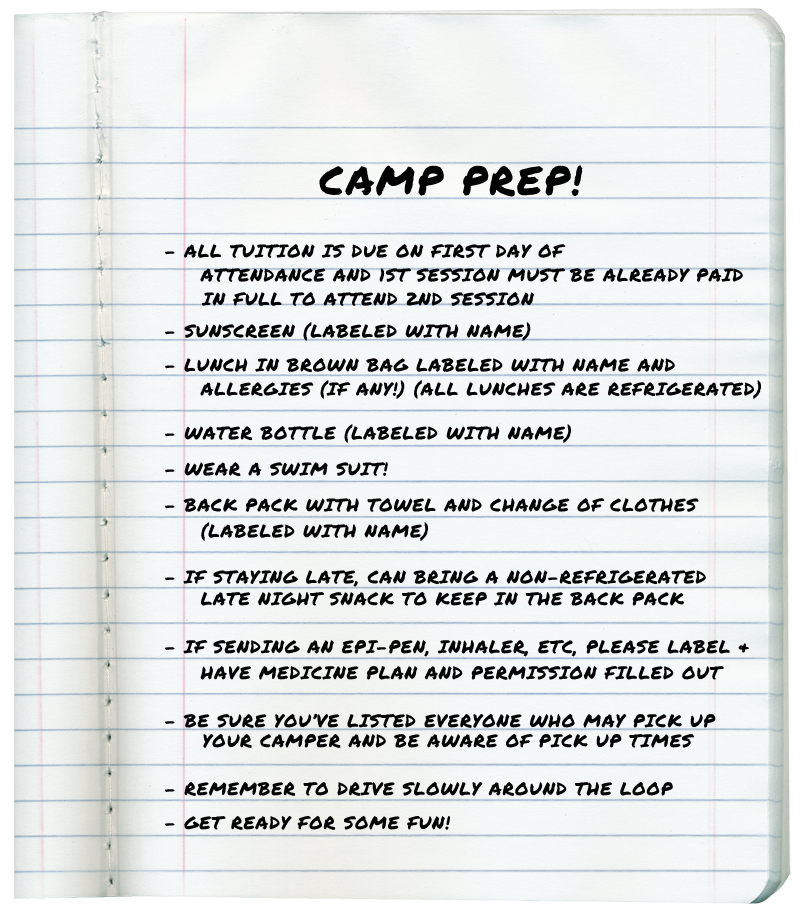 CAMP PREP!
- ALL TUITION IS DUE ON FIRST DAY OF
ATTENDANCE AND 1ST SESSION MUST BE ALREADY PAID
IN FULL TO ATTEND 2ND SESSION
- SUNSCREEN (LABELED WITH NAME)
- LUNCH IN BROWN BAG LABELED WITH NAME AND
ALLERGIES (IF ANY!) (ALL LUNCHES ARE REFRIGERATED)
- WATER BOTTLE (LABELED WITH NAME)
- WEAR A SWIM SUIT!
- BACK PACK WITH TOWEL AND CHANGE OF CLOTHES
(LABELED WITH NAME)
- IF STAYING LATE, CAN BRING A NON-REFRIGERATED
LATE NIGHT SNACK TO KEEP IN THE BACK PACK
- IF SENDING AN EPI-PEN, INHALER, ETC, PLEASE LABEL +
HAVE MEDICINE PLAN AND PERMISSION FILLED OUT
- BE SURE YOU'VE LISTED EVERYONE WHO MAY PICK UP
YOUR CAMPER AND BE AWARE OF PICK UP TIMES
- REMEMBER TO DRIVE SLOWLY AROUND THE LOOP
- GET READY FOR SOME FUN!